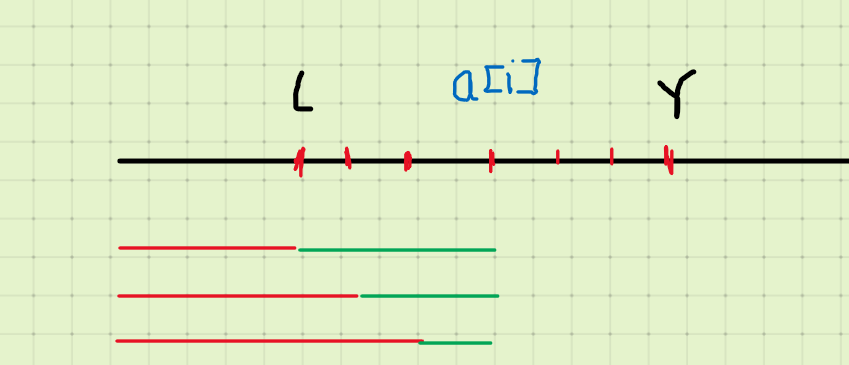 L a[i] Y